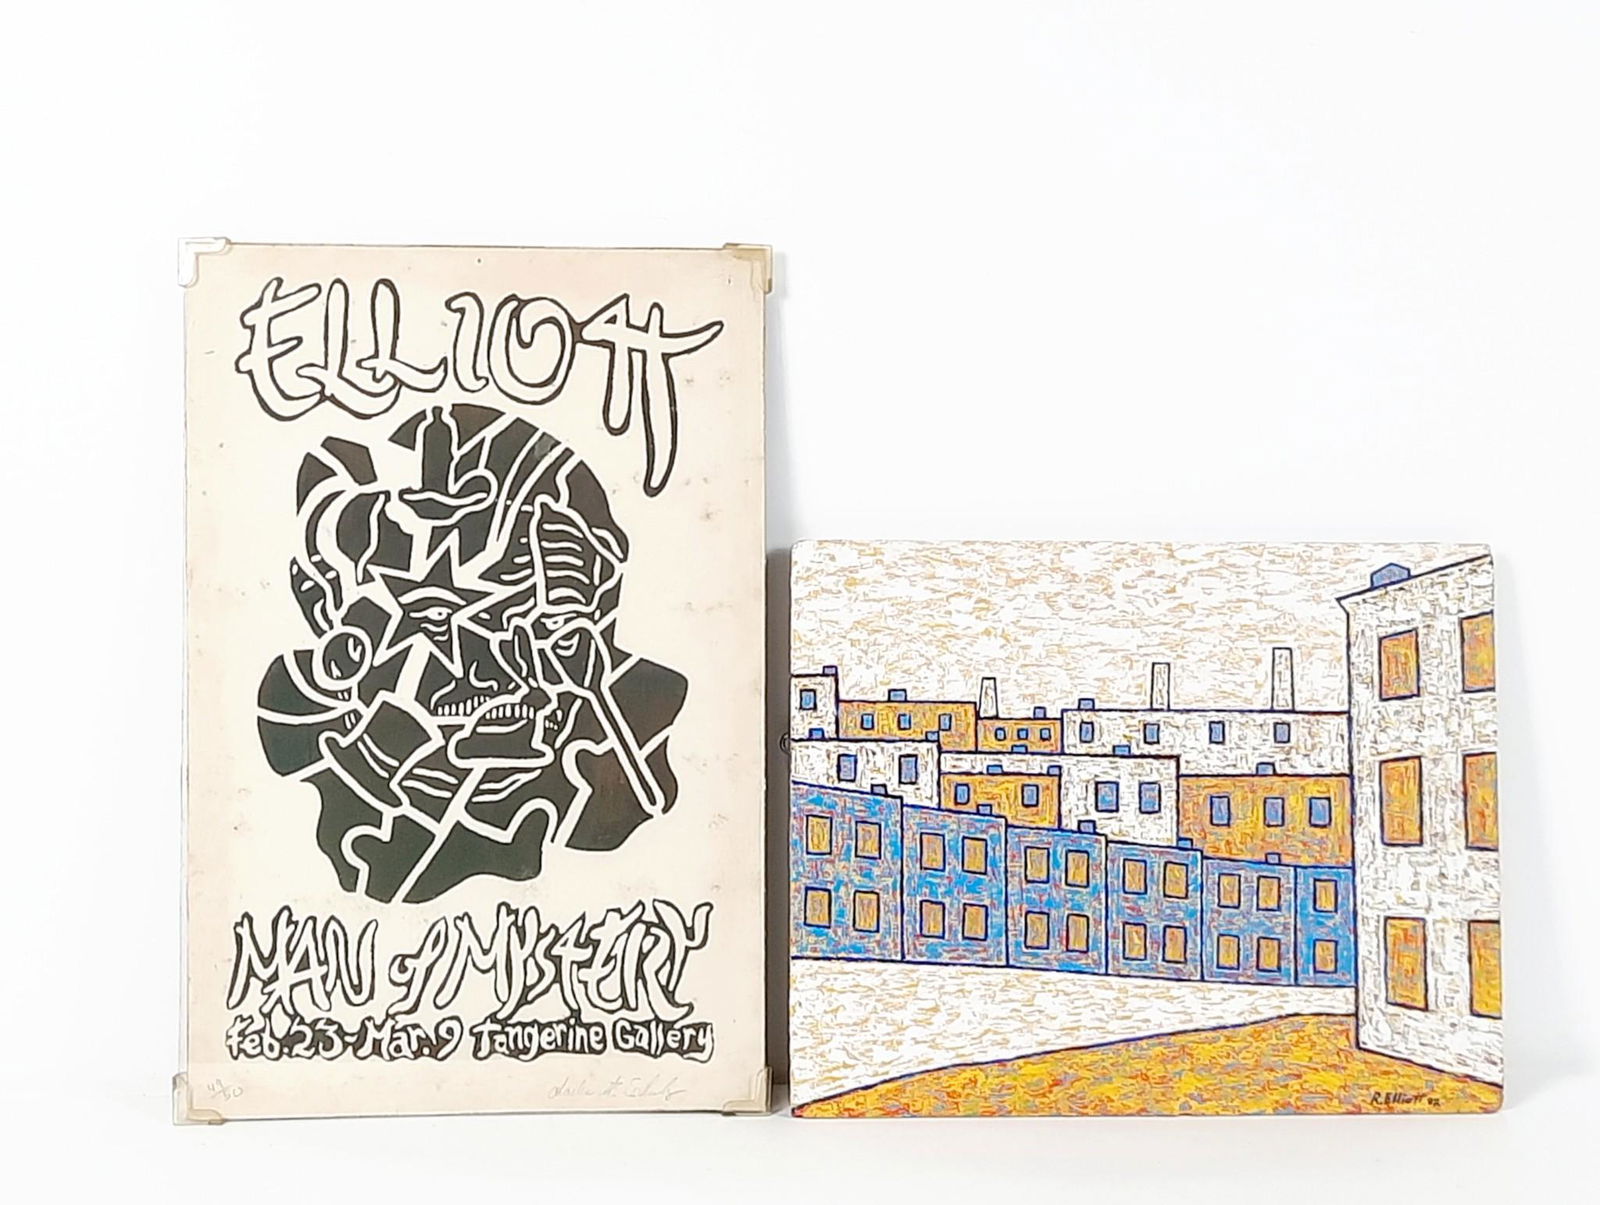 ELLIOTT
MAN of MYSTERY
Feb. 23-Mar. 9 Tangerine Gallery
49/50
R. Elliott 92